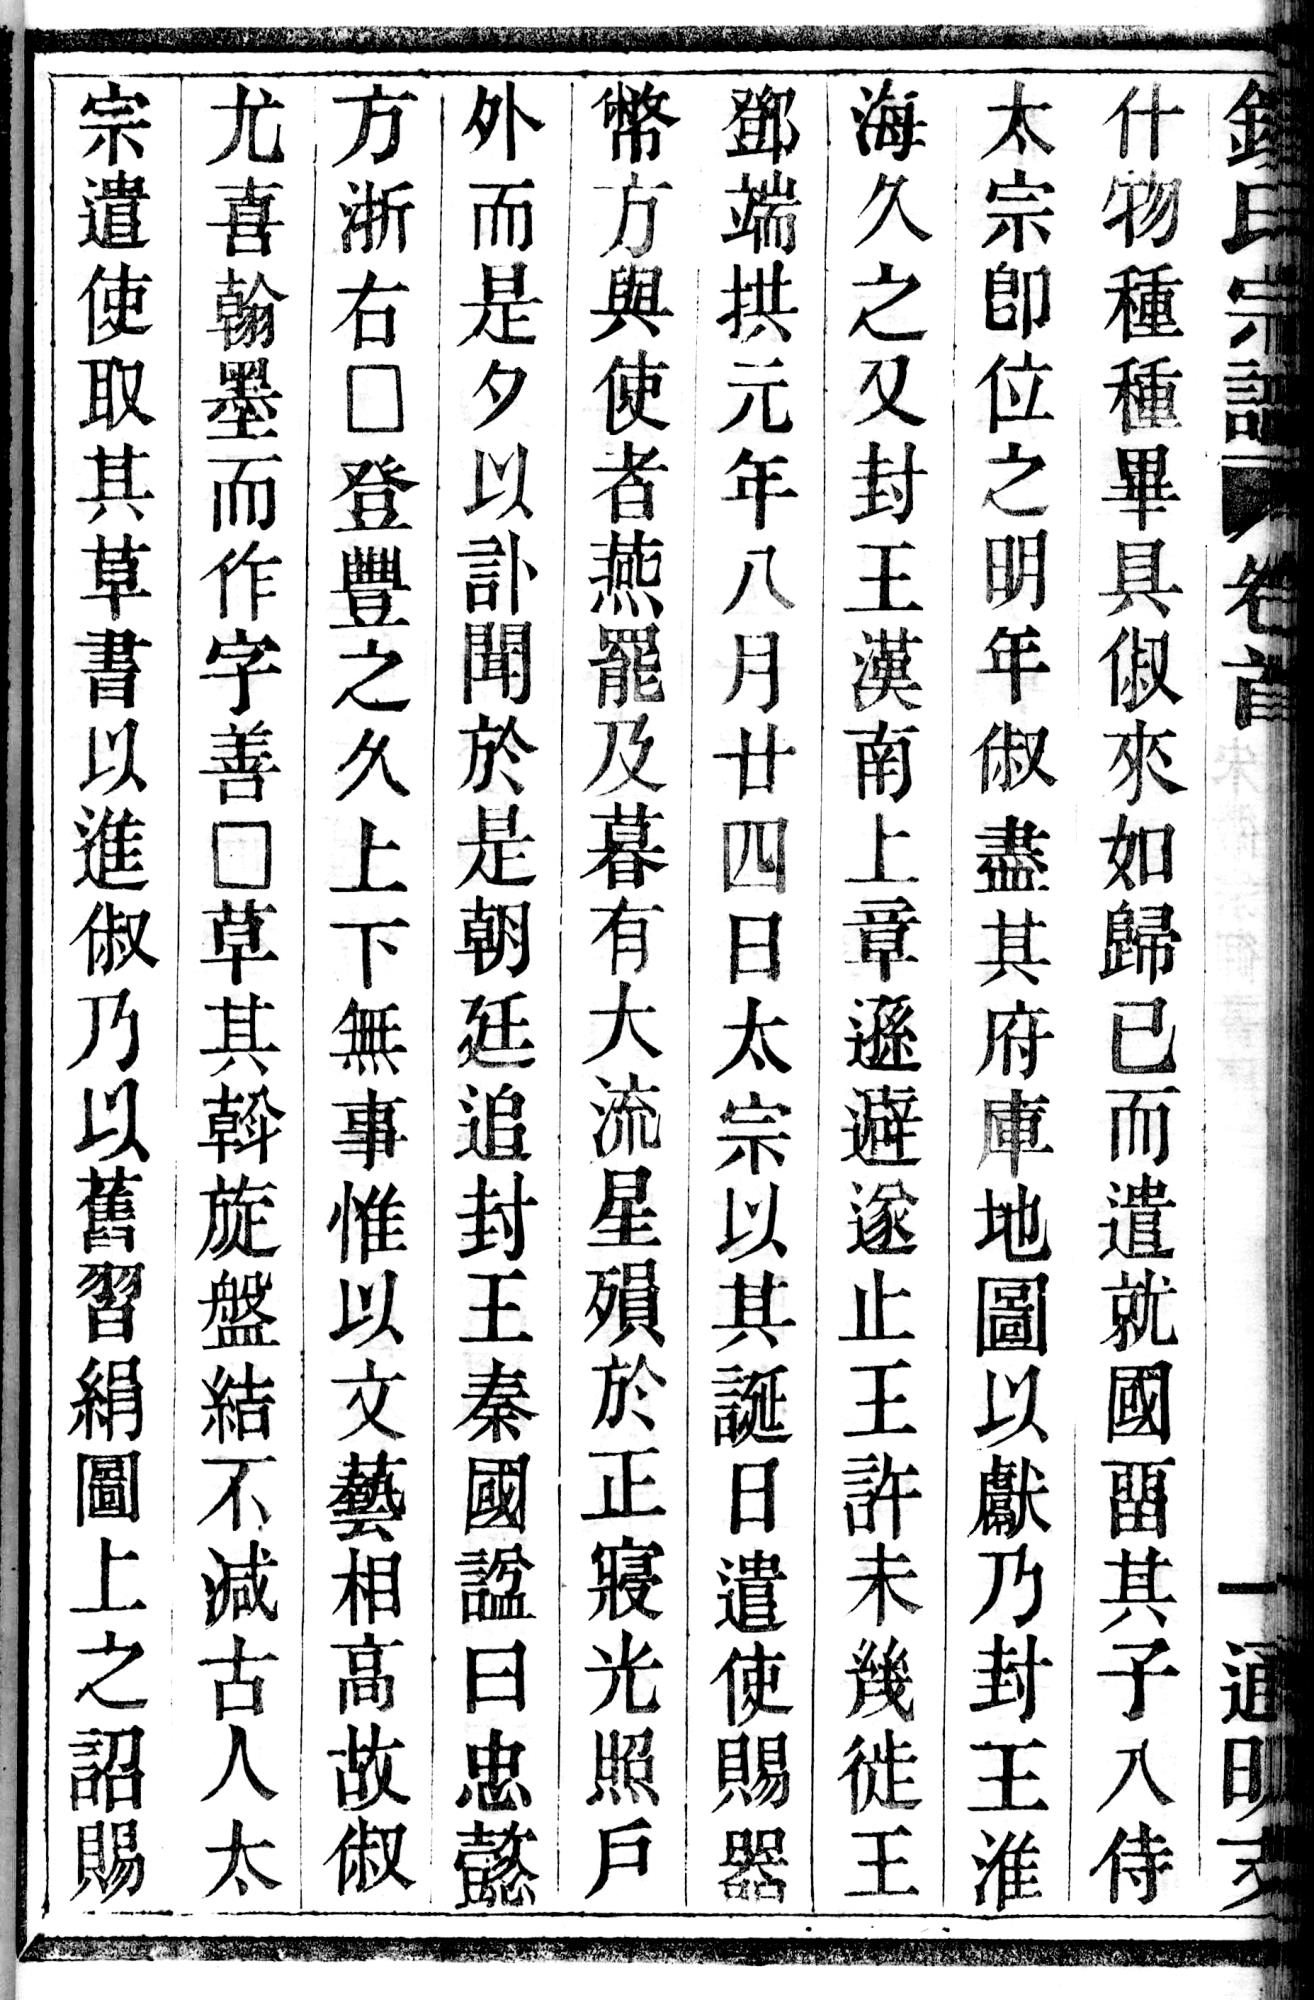 錢氏宗譜 卷首 一 通明
什物種種畢具俶來如歸已而遣就國畱其子入侍
太宗卽位之明年俶盡其府庫地圖以獻乃封王淮
海久之又封王漢南上章遜避遂止王許未幾徙王
鄧端拱元年八月廿四日太宗以其誕日遣使賜器
幣方與使者燕罷及暮有大流星殞於正寢光照戶
外而是夕以訃聞於是朝廷追封王秦國諡曰忠懿
方浙右□登豐之久上下無事惟以文藝相高故俶
尤喜翰墨而作字善□草其斡旋盤結不減古人太
宗遣使取其草書以進俶乃以舊習絹圖上之詔賜